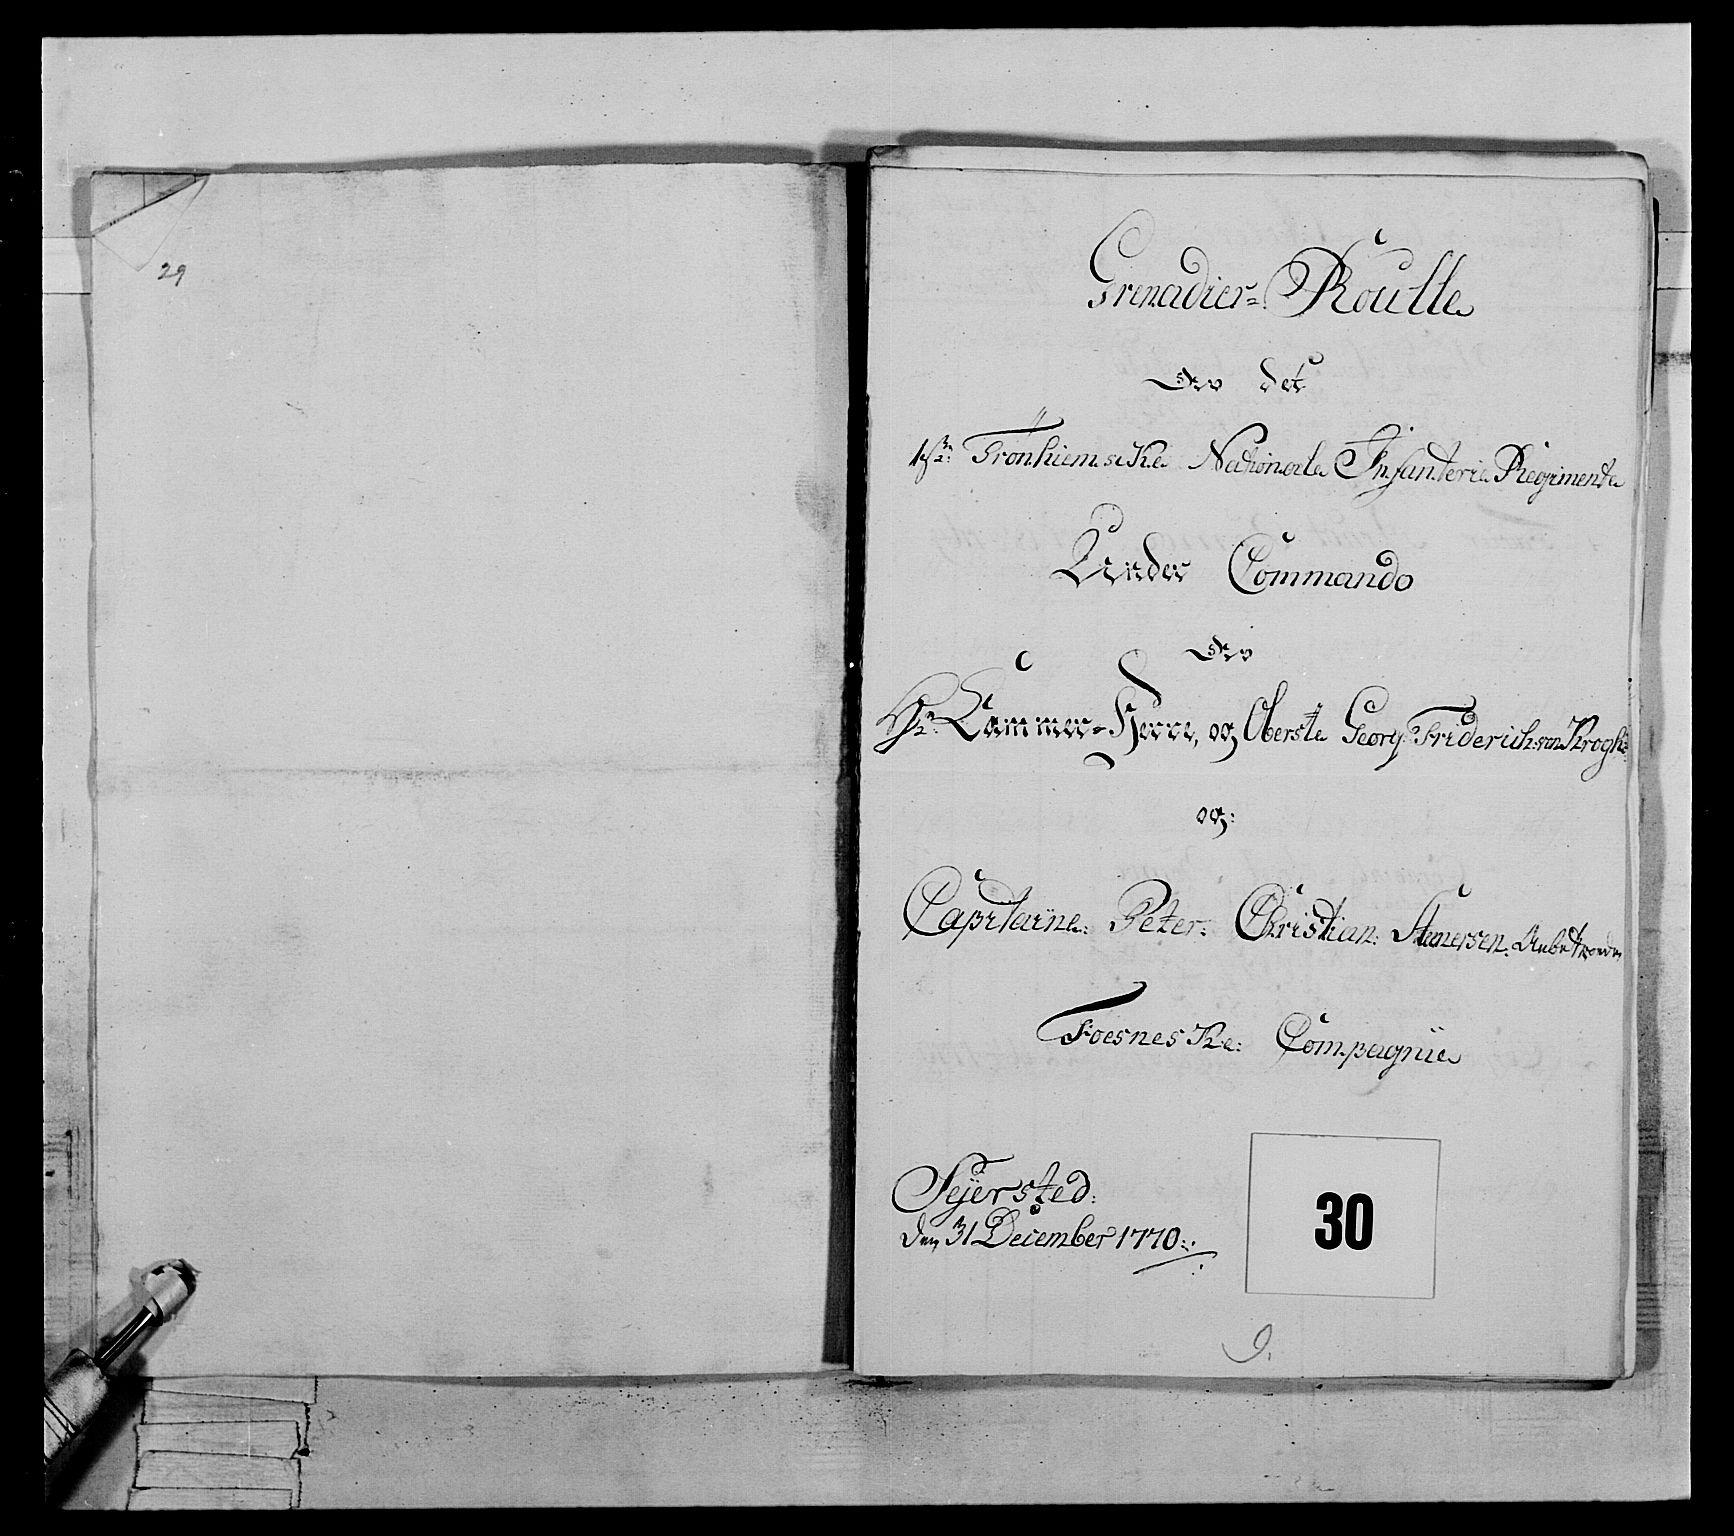 29
Grenadier= Roulle
Av det
1ste Tronhiemske Nationale Infanterie Regimente
Under Commando
Av
Hr. Cammer=Herre, og Oberste Georg Friderich von Krogh:
og:
Capitaine: Peter: Christian: Stenersen. Anbetroede
Foesneske: Compagnie
Sejersted:
den 31 December 1770.
30
9.